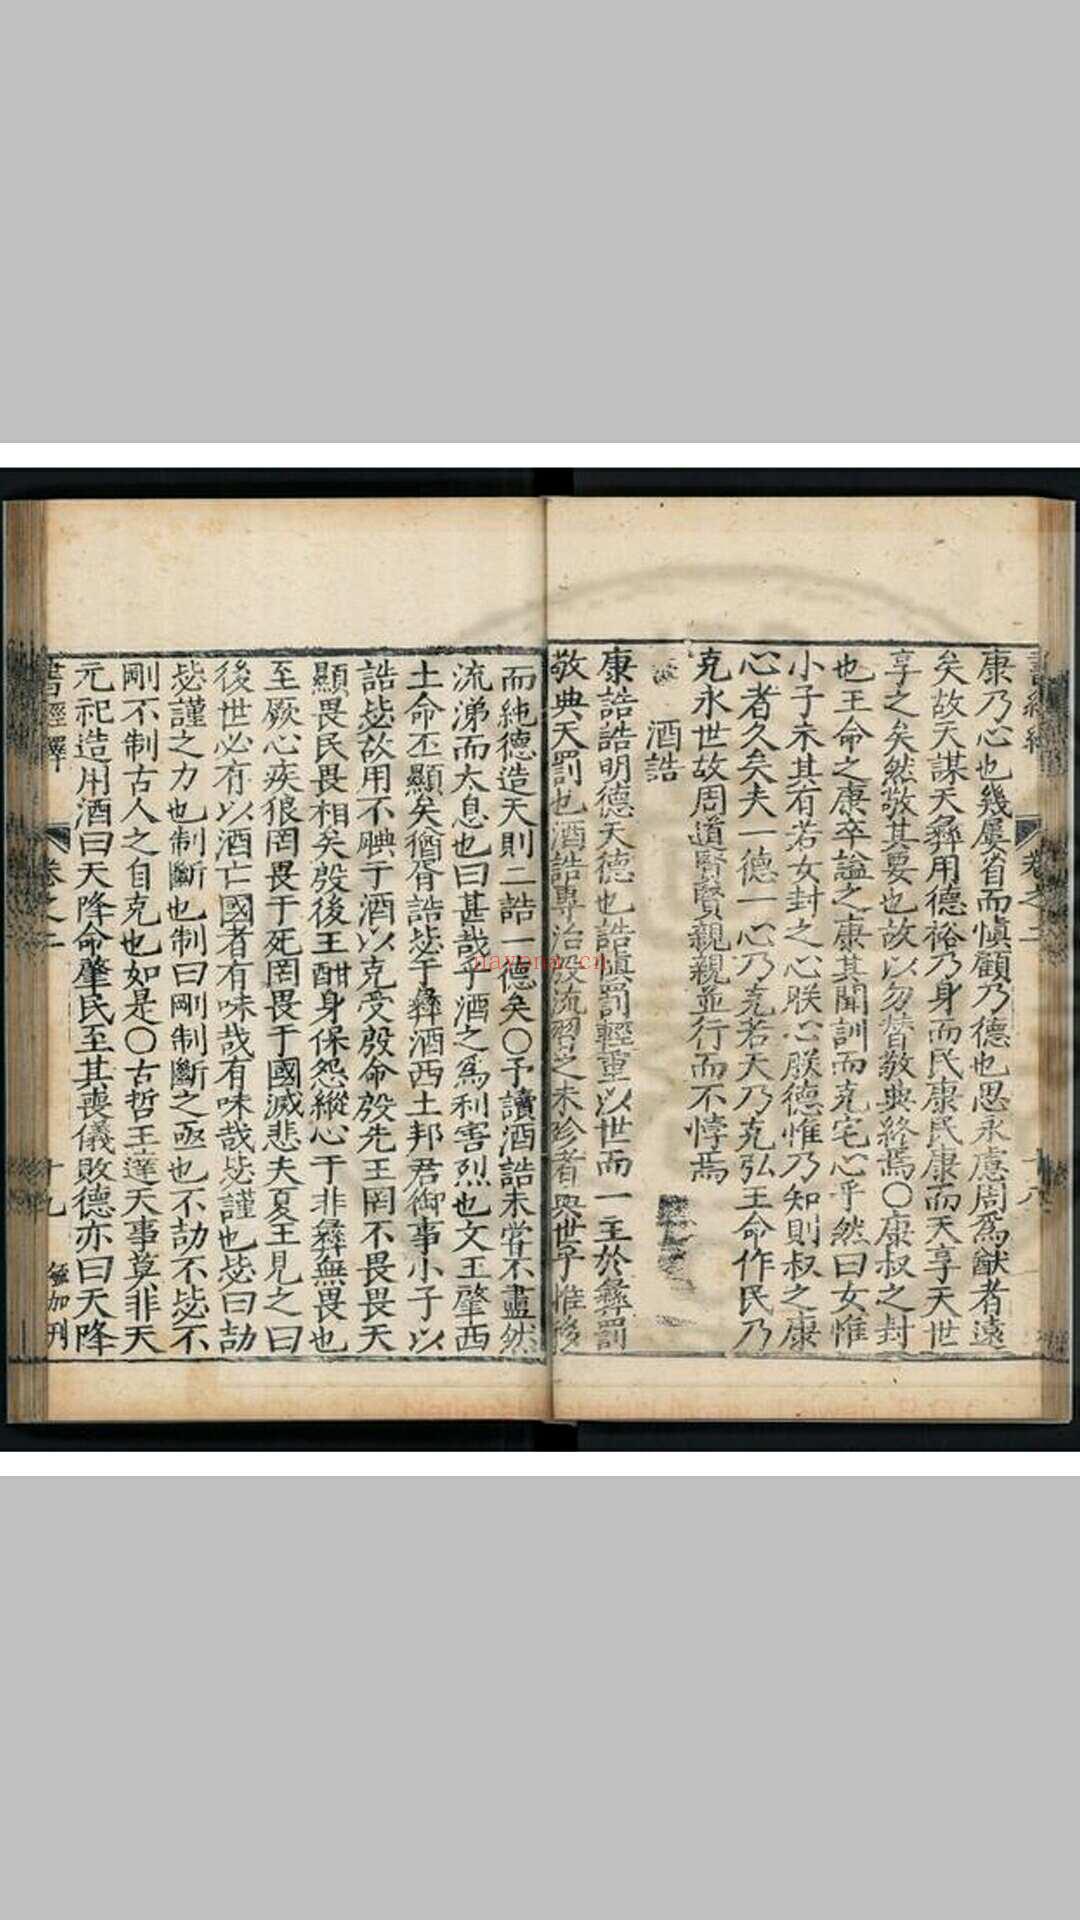 書經繹
卷之二
十八
康乃心也幾屢省而慎顧乃德也思永慮周爲猷者遠
矣故天謀天彝用德裕乃身而民康民康而天享天世
享之矣然敬其要也故以勿替敬典終焉〇康叔之封
也王命之康卒謚之康其聞訓而克宅心乎然曰女惟
小子未其有若女封之心朕心朕德惟乃知則叔之康
心者久矣夫一德一心乃克若天乃克弘王命作民乃
克永世故周道賢賢親親並行而不悖焉
酒誥
康誥誥明德天德也誥慎罰輕重以世而一主於彝罰
敬典天罰也酒誥專治殷流習之未殄者與世乎惟移
而純德造天則二誥一德矣〇予讀酒誥未嘗不盡然
流涕而太息也曰甚哉乎酒之爲利害烈也文王肇西
土命丕顯矣猶胥誥毖于彝酒西土邦君御事小子以
誥毖故用不腆于酒以克受殷命殷先王罔不畏畏天
顯畏民畏相矣殷後王酣身保怨縱心于非彝無畏也
至厥心疾狠罔畏于死罔畏于國滅悲夫夏王見之曰
後世必有以酒亡國者有味哉有味哉毖謹也毖曰劼
毖謹之力也制斷也制曰剛制斷之亟也不劼不毖不
剛不制古人之自克也如是〇古哲王達天事莫非天
元祀造用酒曰天降命肇民至其喪儀敗德亦曰天降
書經繹
卷之二
十九
加刊
nayona.cn